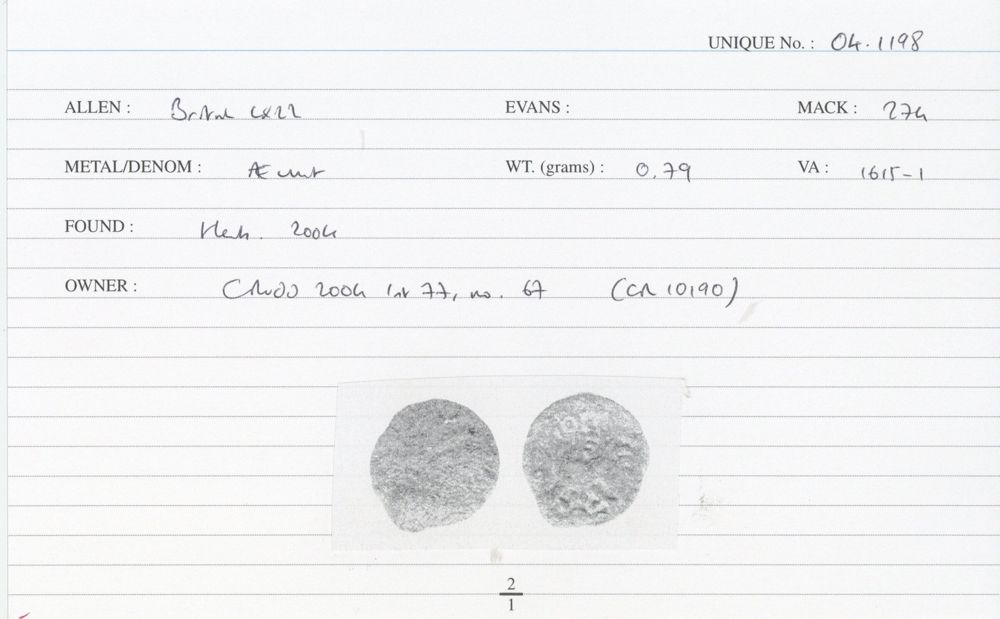 UNIQUE No. : 04.1198
ALLEN : British LX22 EVANS : MACK : 274
METAL/DENOM : Æ unit WT. (grams) : 0.79 VA : 1615-1
FOUND : 2004
OWNER : 2004 list 77, no. 67 (CR 10190)
2
1